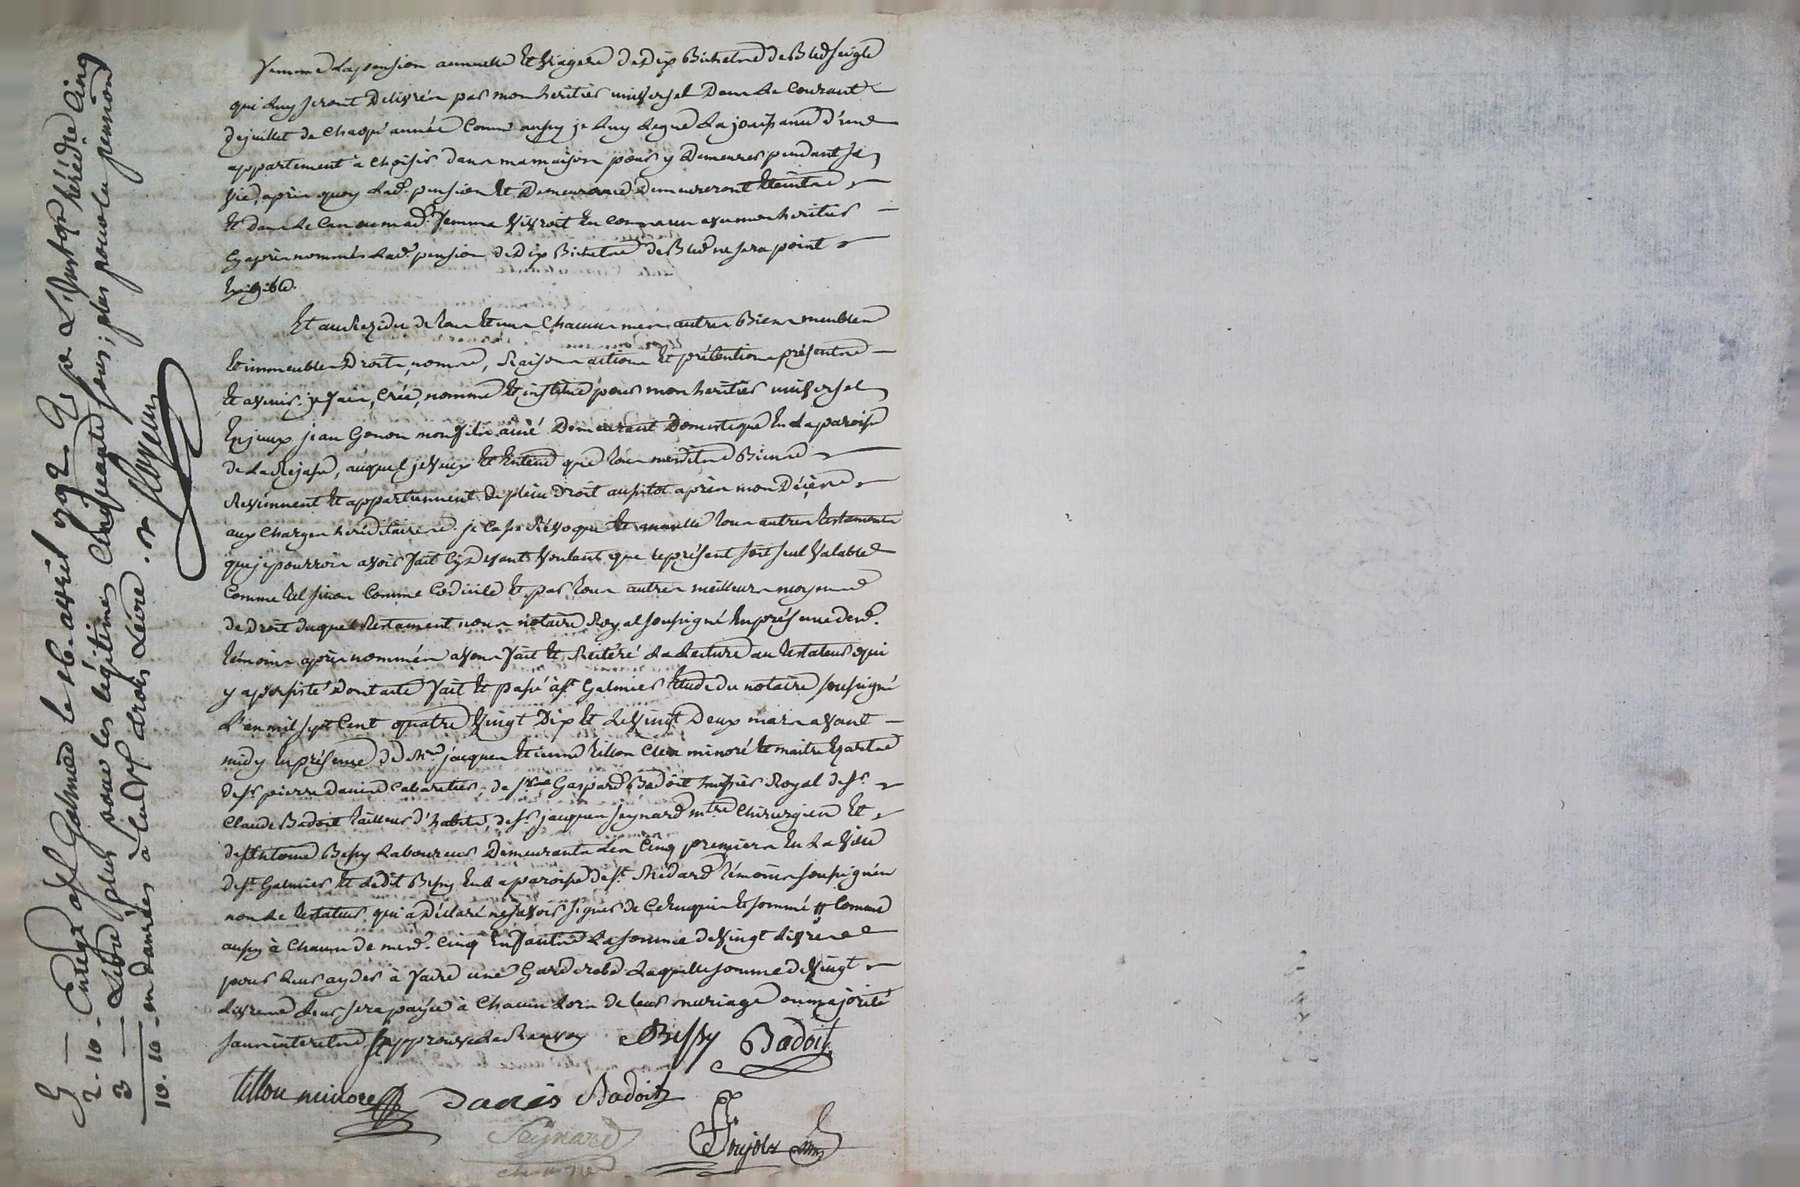 femme la pension annuelle et viagere de dix Bichets de Bled seigle
qui luy seront delivrés par mon heritier universel dans le courant
de juillet de chaque année comme aussy je luy legue la jouissance d'une
appartement a choisir dans ma maison pour y demeurer pendant sa
vie, après quoy lad. pension et demeurance demeureront éteintes
et dans le cas ou mad. femme vivroit en commun avec mon heritier
cy après nommé lad. pension de dix Bichets de Bled ne sera point
exigible.
Et au Rezidu de tous et uns chacuns mes autres Biens meubles
et immeubles Droits, noms, Raisons actions et prétentions présents
et avenir je fais, crée, nomme et institue pour mon heritier universel
jean Gonon mon fils ainé Demeurant Domestique en la paroisse
de La Rejasse, auquel je veux et entend que tous mesdits Biens
Reviennent et appartiennent de plein Droit aussitot après mon Décès
aux charges héréditaires. je casse Révoque et annulle tous autres testaments
que je pourrois avoir fait cy devant voulant que le présent soit seul valable
comme tel sinon comme codicile et par tous autres meilleurs moyens
de Droit duquel testament nous notaire Royal soussigné en présence des
témoins après nommés avons fait et Réitéré la lecture au testateur qui
y a persisté Dont acte fait et passé à st Galmier Etude du notaire soussigné
L'an mil sept cent quatre vingt Dix et le vingt Deux mars avant
midy en présence de Mre jacques Etienne tillon clerc minoré et maitre
de sr pierre danies cabaretier, de Gaspard Badoit huissier Royal de sr
claude Badoit tailleur d'habits, de sr jacques seignard mtre chirurgien et
de Antoine Bessy Laboureur Demeurants les cinq premiers en la ville
de st Galmier et ledit Bessy en la paroisse de st Médard témoins soussignés
non le testateur qui a déclaré ne savoir signer de ce enquis et sommé # comme
aussy à chacun de mesd. cinq Enfants la somme de vingt livres
pour leur ayder à faire une Garderobe laquelle somme de vingt
livres leur sera payée à chacun lors de leur mariage ou majorité
sans interets approuvé le Renvoy Bessy Badoit
tillon minoré Danies Badoit
Seignard
chirurgien
G — Contrôlé à st Galmier le 16. avril 792
2. 10 - plus pour les légitimes cinquante sous; plus pour la pension
10. 10 en danrées a trois Livre